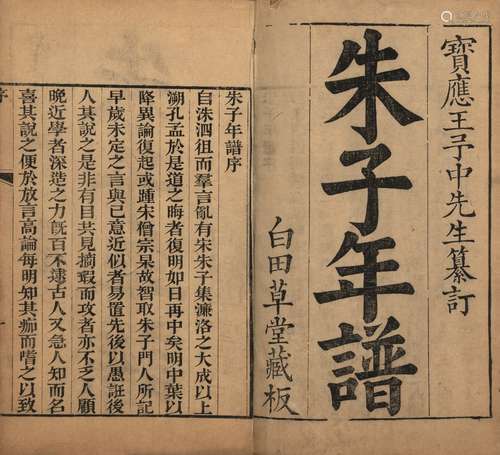 寶應王予中先生纂訂
朱子年譜
白田草堂藏板
朱子年譜序
自洙泗徂而羣言亂有宋朱子集濂洛之大成以上
溯孔孟於是道之晦者復明如日再中矣明中葉以
降異論復起或踵宋僧宗杲故智取朱子門人所記
早歲未定之言與己意近似者易置先後以愚誑後
人其說之是非有目共見摘瑕而攻者亦不乏人顧
晚近學者深造之力旣百不逮古人又急人知而名
喜其說之便於放言高論每明知其痂而嗜之以致
序